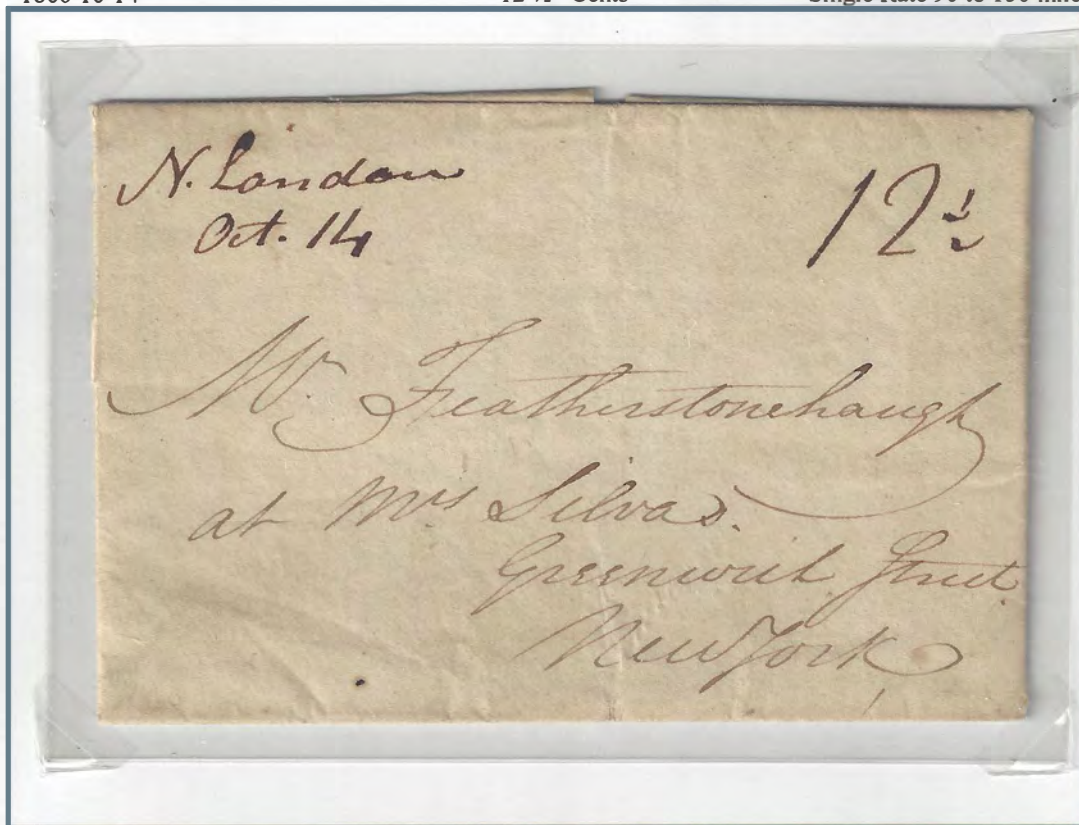 N. London
Oct. 14
12 ½
Mr. Featherstonehaugh
at Mrs Silvas.
Greenwich Street
New York